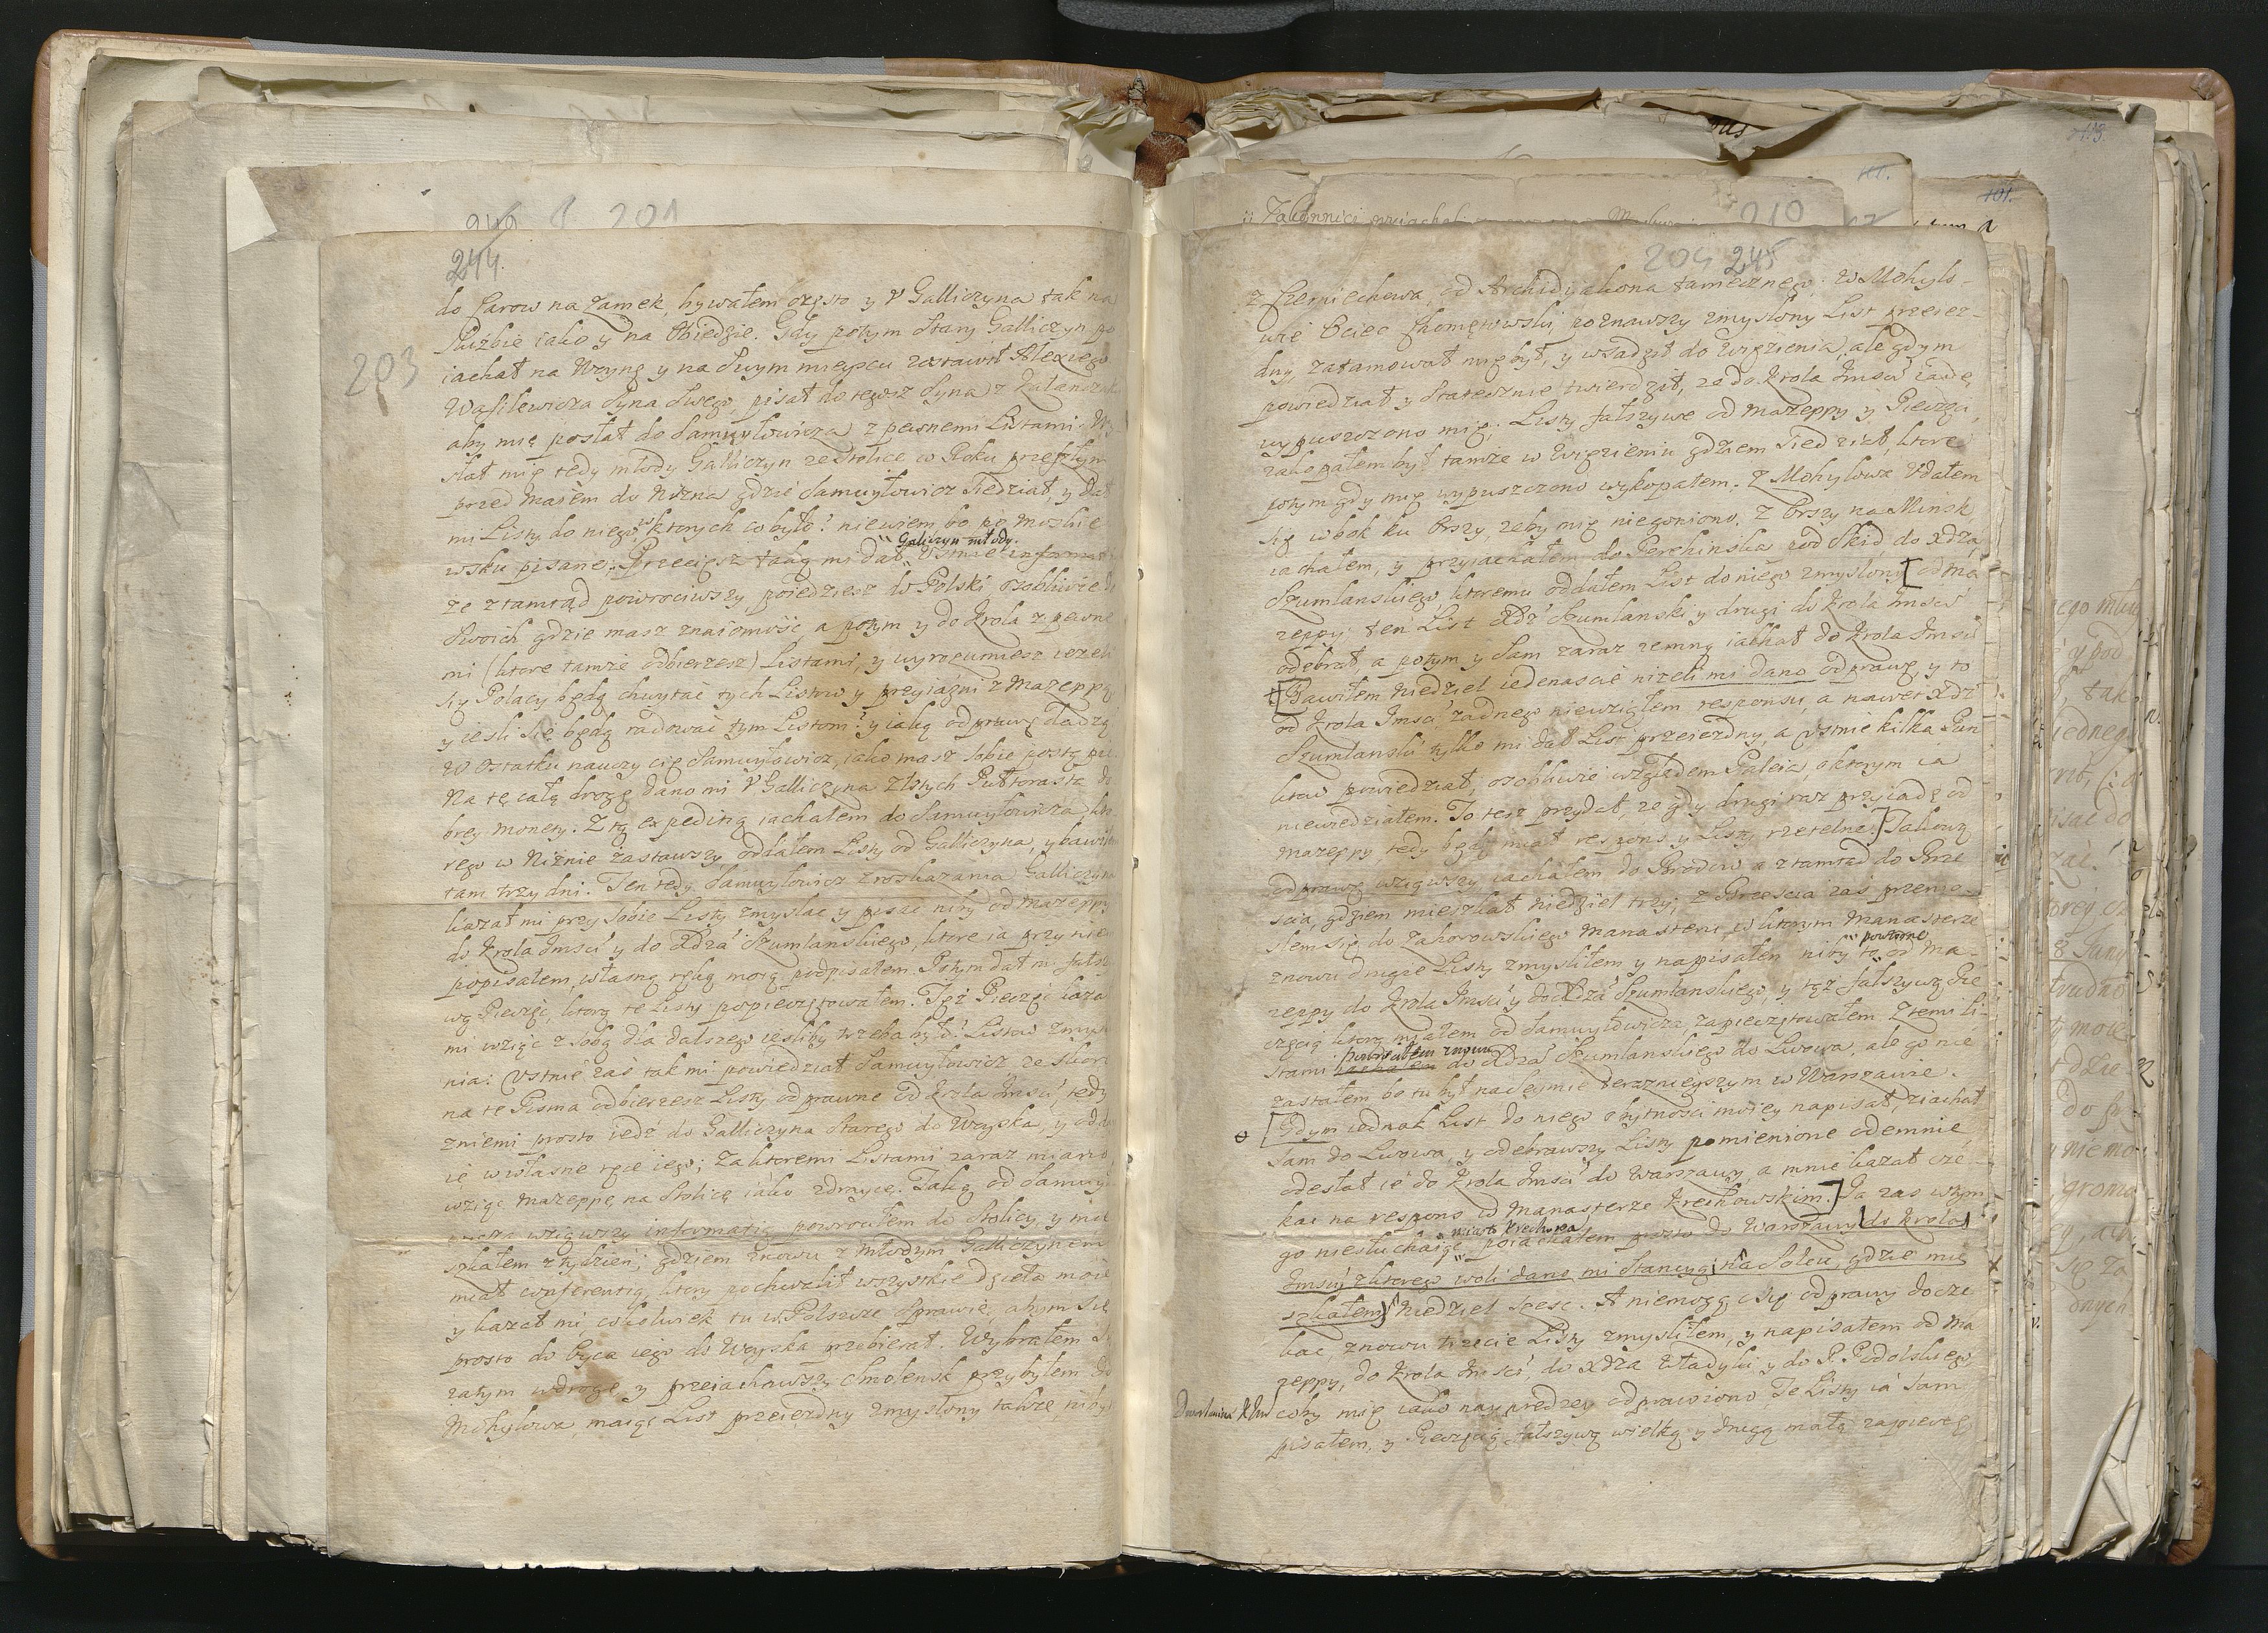 249 201
244.
203
do Carow na Zamek, bywałem często y v Galliczyna tak na
służbie iako y na Obiedzie. Gdy potym Stary Galliczyn po
iachał na Woynę y na swym mieyscu zostawił Alexiego
Wasilewicza Syna Swego, pisał do tegosz Syna z
aby mię posłał do Samuyłowicza z pewnemi Listami. Wy
słał mię tedy młody Galliczyn ze Stolice w Roku przeszłym
przed Maiem do Niżna gdzie Samuyłowicz Siedział, y dał
mi Listy do niego, w ktorych co było? niewiem bo po Moskie
wsku pisane; Przeciesz taką mi dał Galiczyn młody vstnie informat
że ztamtąd powrociwszy poiedziesz do Polski osobliwie do
Swoich gdzie masz znaiomość, a potym y do Krola z pewne
mi (ktore tamże odbierzesz) Listami, y wyrozumiesz ieżeli
się Polacy będą chwytać tych Listow y przyiaźni z Mazeppą
y iesli się będą radować tym Listom? y iaką odprawę dadzą
W Ostatku nauczy cię Samuyłowicz, iako masz sobie postą pić.
Na tę całą drogę dano mi v Galliczyna Złotych Pułtorasta do
brey monety. Z tą expeditią iachałem do Samuyłowicza, kto
rego w Niżnie zastawszy, oddałem Listy od Galliczyna, y bawiłem
tam trzy dni. Ten tedy Samuyłowicz z roskazania Galliczyna
kazał mi przy sobie Listy zmyslać y pisać niby od Mazeppy
do Krola Jmsci y do Xdza Szumlanskiego, ktore ia przy nim
popisałem, własną ręką moią podpisałem. Potym dał mi fałszy
wą Pieczęć, ktorą te Listy popieczętowałem. Tęż Pieczęć kazał
mi wziąć z sobą dla dalszego iesliby trzeba było? Listow zmysle
nia: Vstnie zaś tak mi powiedział Samuyłowicz, że skoro
na te Pisma odbierzesz Listy odprawne od Krola Jmsci, tedy
zniemi prosto iedź do Galliczyna Starego do Woyska, y odday
ie w własne ręce iego; Za ktoremi Listami zaraz miano
wziąć Mazeppę na Stolicę iako zdraycę. Taką od Samuyło
wicza wziąwszy informatią powrociłem do Stolicy, y mie
szkałem z tydzień; gdziem znowu z młodym Galliczynem
miał conferentią, ktory pochwalił wszystkie dzieła moie
y kazał mi, cokolwiek tu w Polszcze sprawię, abym się
prosto do Oyca iego do Woyska przebierał. Wybrałem się
zatym w drogę, y przeiachawszy Smolensk przybyłem do
Mohylowa, maiąc List przeiezdny zmyslony także niby
213.
101.
210
Zakonnicy
204 245
z Czerniechowa, od Archidyakona tamecznego; w Mohylo-
wie Ociec Chometowski poznawszy zmyslony List przeiez-
dny, zatamował mię był, y wsadził do Więzienia, ale gdym
powiedział y Statecznie twierdził, że do Krola Jmsci iadę,
wypuszczono mię; Listy fałszywe od Mazeppy y Pieczęć,
zakopałem był tamże w Więzieniu gdziem Siedział, ktore
potym gdy mię wypuszczono wykopałem. Z Mohylowa Vdałem
się w bok ku Orszy, żeby mię niegoniono. Z Orszy na Minsk
iachałem, y przyiachałem do Perehinska pod Skid, do Xdza
Szumlanskiego, ktoremu oddałem List do niego zmyslony [od Ma
zeppy; ten List Xdz Szumlanski y drugi do Krola Jmsci
odebrał, a potym y sam zaraz zemną iachał do Krola Jmsci
[Bawiłem Niedziel iedenascie niżeli mi dano odprawę, y to
od Krola Jmsci żadnego niewziąłem responsu, a nawet Xdz
Szumlanski tylko mi dał List przeiezdny, a vstnie kilka Pun
ktow powiedział, osobliwie względem Paleia, o ktorym ia
niewiedziałem. To tesz przydał, że gdy drugi raz przyiadę od
Mazeppy, tedy będę miał respons y Listy rzetelne.] Takową
odprawę wziąwszy iachałem do Brodow a ztamtąd do Brze
scia, gdziem mieszkał niedziel trzy; z Brzescia zaś przenio-
słem się do Zahorowskiego Manasteru, w ktorym Manasterze
znowu drugie Listy zmysliłem y napisałem niby to powtorne od Ma-
zeppy do Krola Jmsci y do Xdza Szumlanskiego, y tęż fałszywą Pie
częcią ktorą miałem od Samuyłowicza, zapieczętowałem. Ztemi Li-
stami iachałem pobieżałem znowu do Xdza Szumlanskiego do Lwowa, ale go nie
zastałem bo tu był na Seymie terazniejszym w Warszawie.
[Gdym iednak List do niego o bytności moiey napisał, ziachał
sam do Lwowa, y odebrawszy Listy pomienione odemnie
odesłał ie do Krola Jmsci do Warszawy, a mnie kazał cze
kac na respons w Manasterze Krechowskim.] Ja zas w tym
go niesłuchaiąc miasto Krechowa poiachałem prosto do Warszawy do Krola
Jmsci z ktorego woli dano mi Stancyą na Solcu, gdzie mie
szkałem Niedziel szesc. A niemogąc się odprawy docze
kac, znowu trzecie Listy zmysliłem, y napisałem od Ma
zeppy, do Krola Jmsci, do Xdza Władyki y do P. Podolskiego,
coby mię iako nayprędzey odprawiono Te Listy ia sam
pisałem, y Pieczęcią fałszywą wielką y drugą małą zapieczę